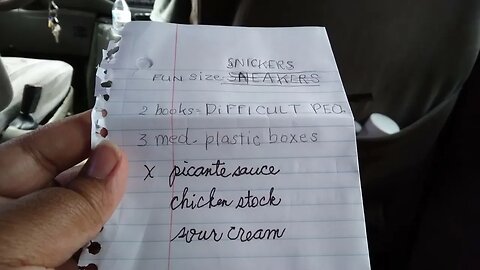 SNICKERS
FUN SIZE SNEAKERS
2 books = DIFFICULT PEO.
3 med. plastic boxes
X picante sauce
chicken stock
sour cream